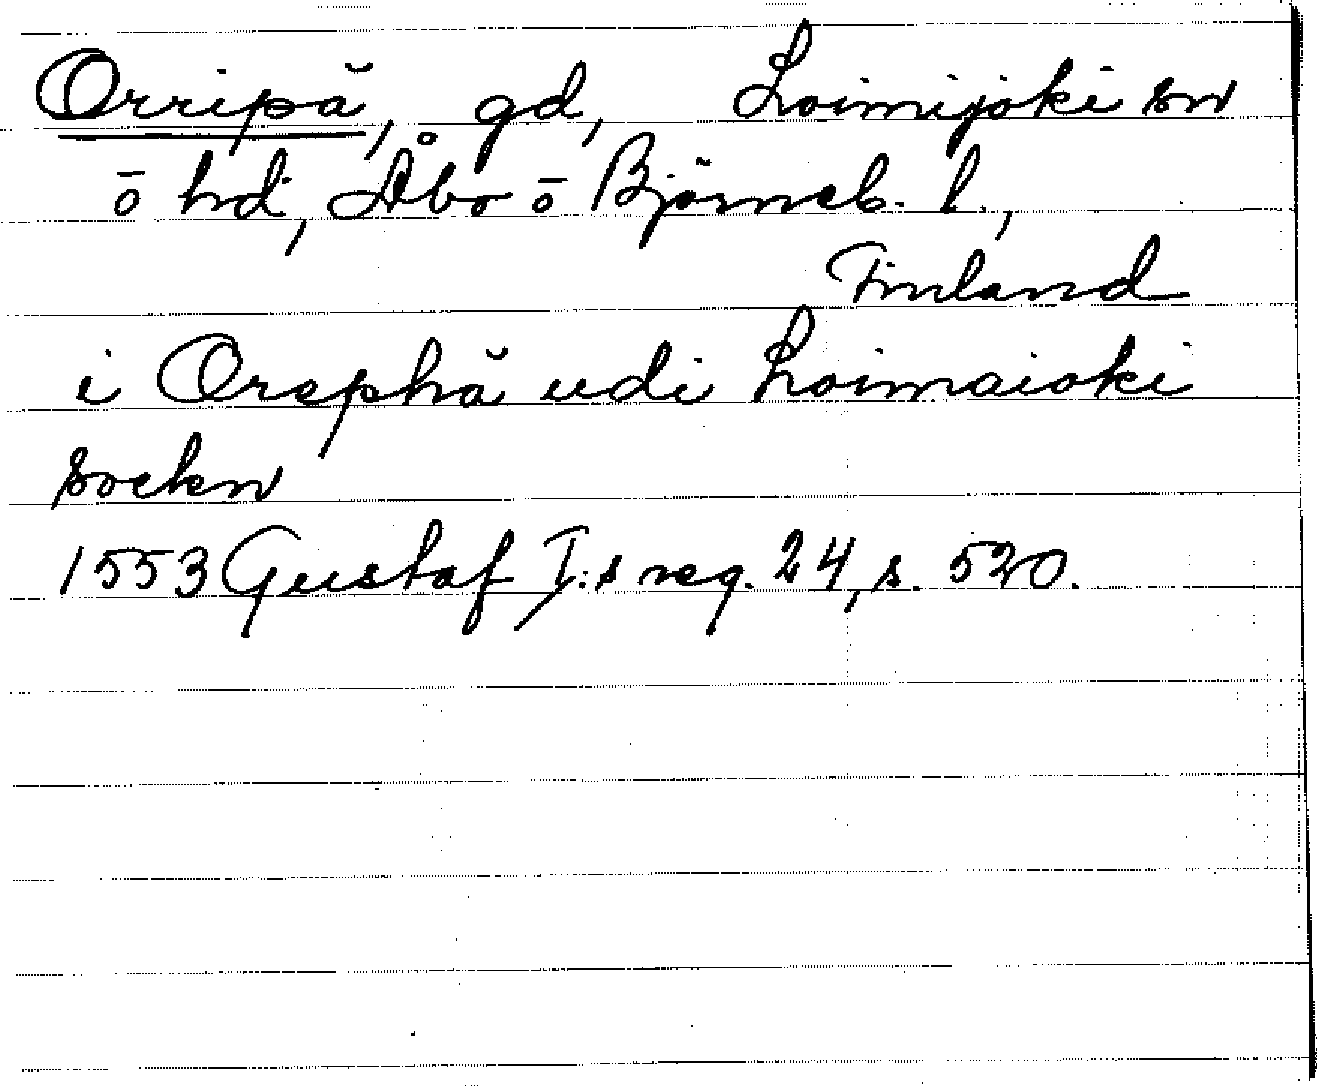 Orripä, gd, Loimijoki sn
o hd, Åbo o Björneb. l.,
Finland
i Orephä udi Loimaioki
sockn
1553 Gustaf I:s reg. 24, s. 520.